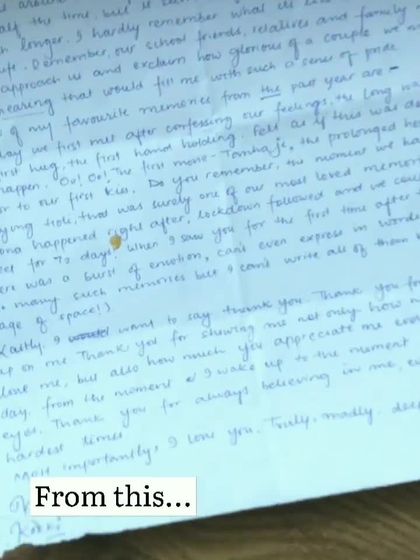 around
half the time, but
longer. I hardly remember what
life. December, our school friends, relatives and family
approach us and exclaim how glorious of a couple we
hearing that would fill me with such a sense of pride
of my favourite memories from the past year are -
day we first met after confessing our feelings, the long
first hug, the first hand holding. Felt as if this was
happen. Oo! Oo! The first movie - Tanhaji, the prolonged
to our first kiss. Do you remember, the moment we
playing Holi, that was surely one of our most loved
happened right after, lockdown followed and we
for 70 days, when I saw you for the first time after
there was a burst of emotion, can't even express in words
many such memories but I can't write all of them
of space!)
Lastly, I want to say thank you. Thank you for
up on me. Thank you for showing me not only how
love me, but also how much you appreciate me
day. from the moment I wake up to the moment
eyes. Thank you for always believing in me,
hardest times
Most importantly, I love you. Truly, madly,
From this...